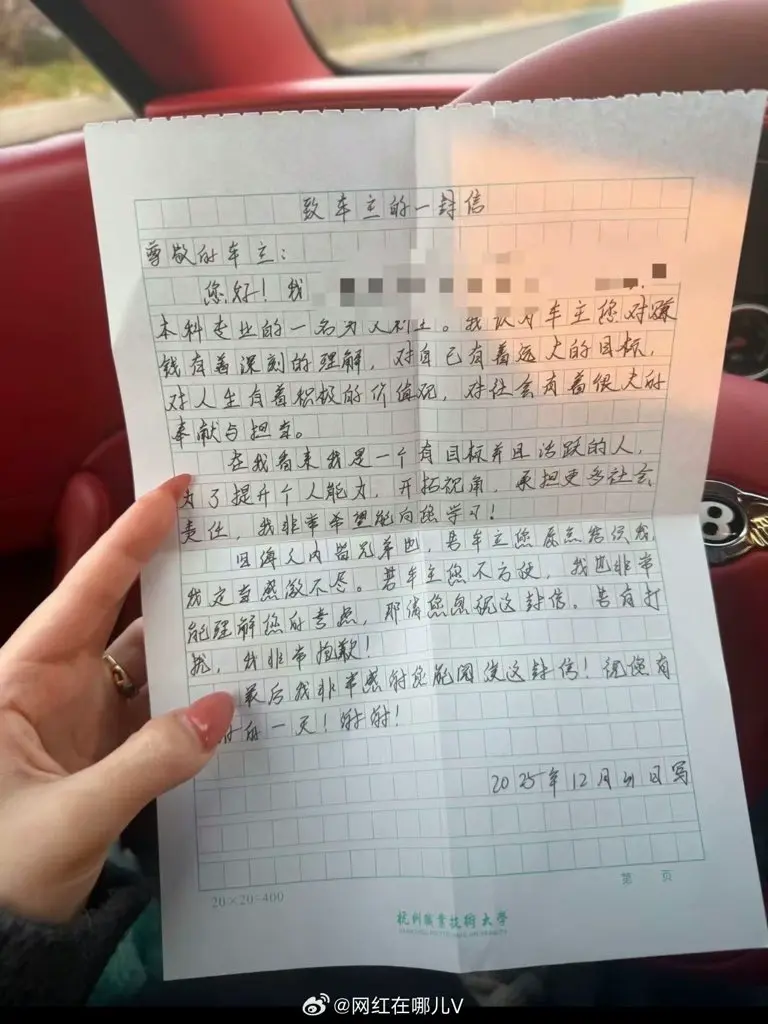 致车主的一封信
尊敬的车主：
您好！我
本科专业的一名
。我认为车主您对赚
钱有着深刻的理解，对自己有着远大的目标，
对人生有着积极的价值观，对社会有着很大的
奉献与担当。
在我看来我是一个有目标并且活跃的人，
为了提升个人能力，开拓视角，承担更多社会
责任，我非常希望能向您学习！
四海之内皆兄弟也，若车主您愿意结识我，
我定当感激不尽。若车主您不方便，我也非常
能理解您的考虑，那请您忽视这封信。若有打
扰，我非常抱歉！
最后我非常感谢您能阅读这封信！祝您有
的一天！谢谢！
2025年12月 日写
20×20=400
第 页
杭州职业技术大学
@网红在哪儿V